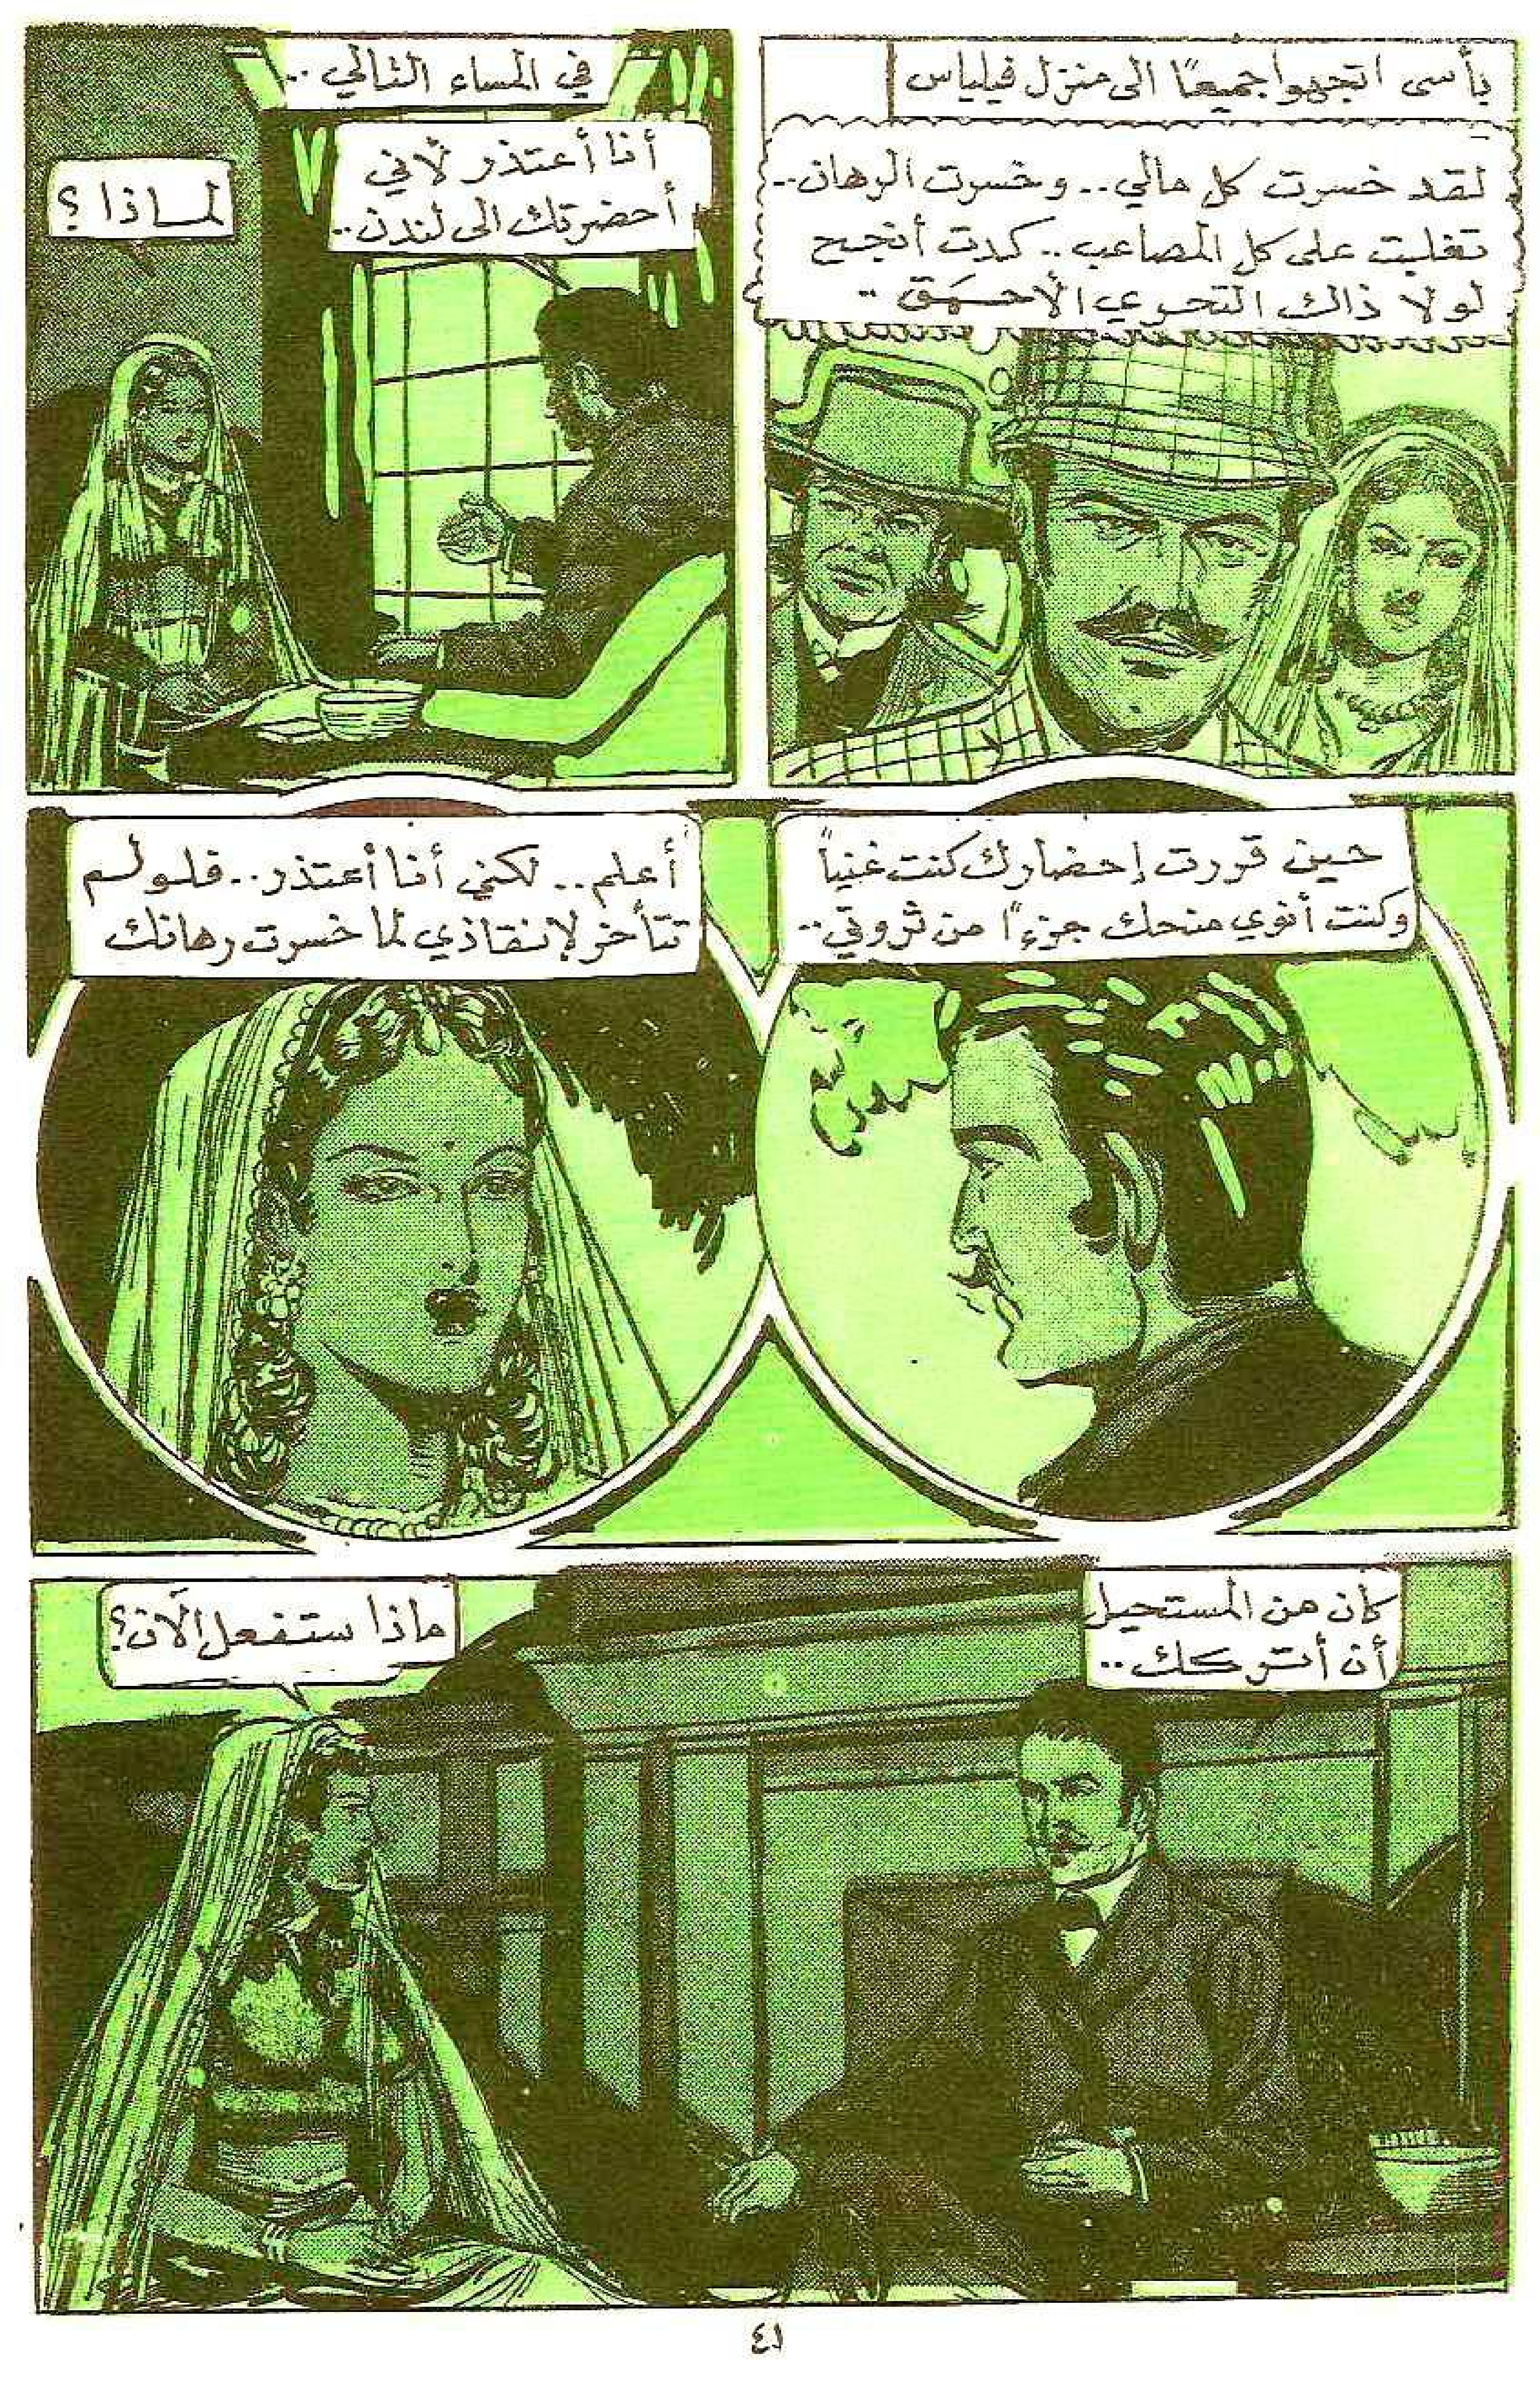 بأسى اتجهوا جميعًا الى منزل فيلياس
لقد خسرت كل مالي.. وخسرت الرهان..
تغلبت على كل المصاعب.. كدت أنجح
لولا ذالك التحري الأحمق..
في المساء التالي..
أنا أعتذر لأني
أحضرتك الى لندن..
لماذا؟
حين قررت إحضارك كنت غنياً
وكنت أنوي منحك جزءًا من ثروتي..
أعلم.. لكني أنا أعتذر.. فلولم
تتأخر لإنقاذي لما خسرت رهانك
كان من المستحيل
أن أتركك..
ماذا ستفعل الآن؟
٤١